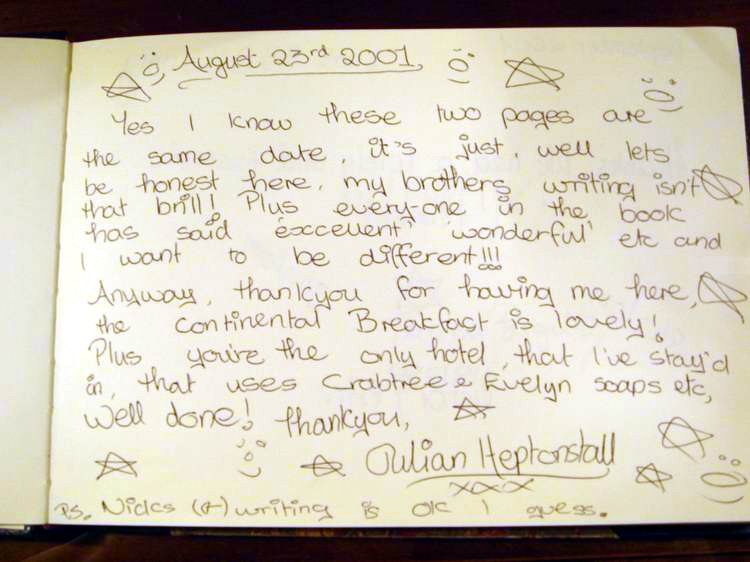 August 23rd 2001.
Yes I know these two pages are
the same date, it's just, well lets
be honest here, my brothers writing isn't
that brill! Plus every-one in the book
has said 'excellent' 'wonderful' etc and
I want to be different!!!
Anyway, thankyou for having me here,
the Continental Breakfast is lovely!
Plus you're the only hotel, that I've stay'd
in, that uses Crabtree & Evelyn soaps etc,
Well done! thankyou,
Julian Heptonstall
xxx
Ps. Nicks writing is OK I guess.